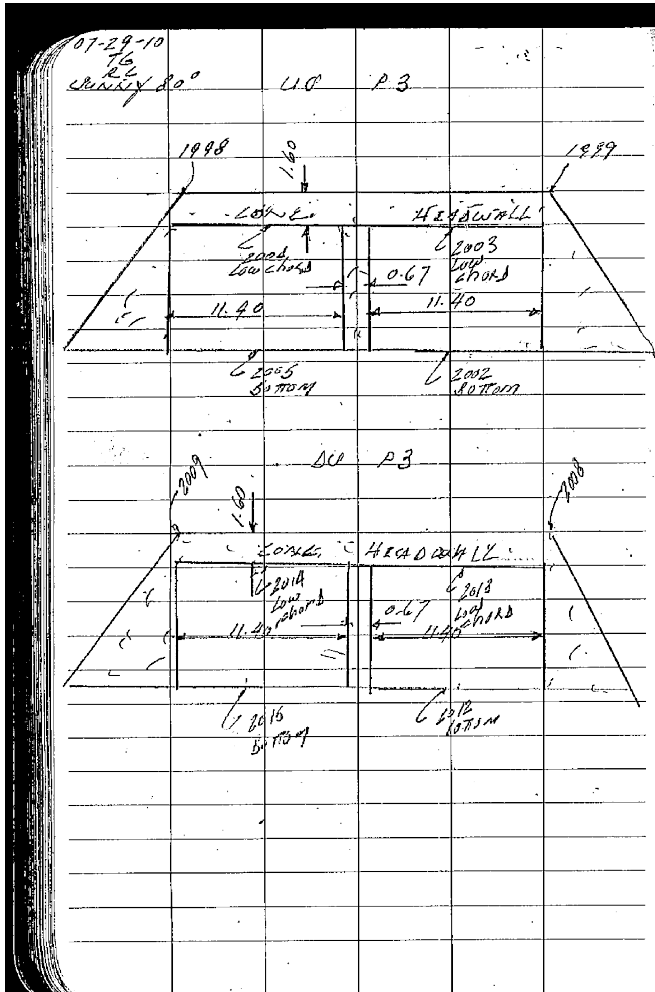 07-29-10
TG
RL
SUNNY 80°
UP P3
1998
1.60
1999
CONC. HEADWALL
2004
LOW CHORD
2003
LOW
CHORD
0.67
11.40
11.40
2005
BOTTOM
2002
BOTTOM
P3
2009
1.60
2008
CONC. HEADWALL
2014
LOW
CHORD
2013
LOW
CHORD
0.67
11.40
11.40
2015
BOTTOM
2012
BOTTOM